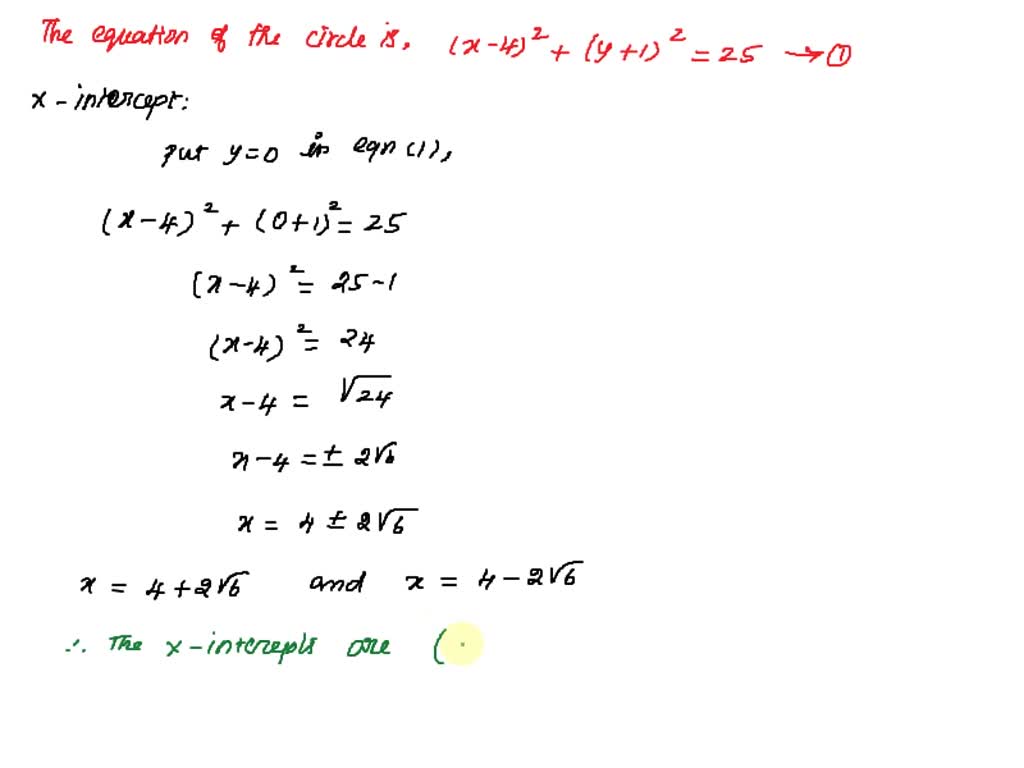 The equation of the circle is, (x-4)² + (y+1)² = 25 → ①
x-intercept:
put y=0 in eqn (1),
(x-4)² + (0+1)² = 25
(x-4)² = 25-1
(x-4)² = 24
x-4 = √24
x-4 = ± 2√6
x = 4 ± 2√6
x = 4+2√6 and x = 4-2√6
∴ The x-intercepts are (